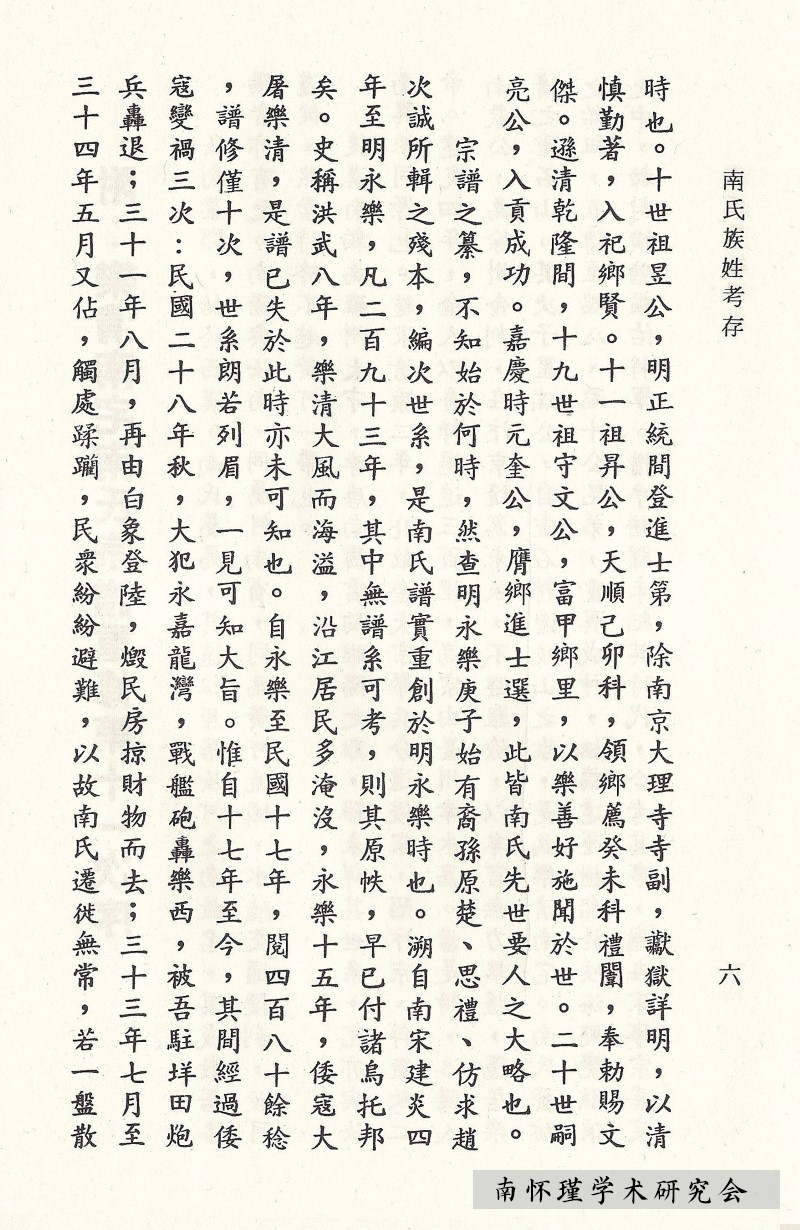 南氏族姓考存
六
時也。十世祖昱公，明正統間登進士第，除南京大理寺寺副，讞獄詳明，以清
慎勤著，入祀鄉賢。十一祖昇公，天順己卯科，領鄉薦癸未科禮闈，奉勅賜文
傑。遜清乾隆間，十九世祖守文公，富甲鄉里，以樂善好施聞於世。二十世嗣
亮公，入貢成功。嘉慶時元奎公，膺鄉進士選，此皆南氏先世要人之大略也。
宗譜之纂，不知始於何時，然查明永樂庚子始有裔孫原楚、思禮、仿求趙
次誠所輯之殘本，編次世系，是南氏譜實重創於明永樂時也。溯自南宋建炎四
年至明永樂，凡二百九十三年，其中無譜系可考，則其原帙，早已付諸烏托邦
矣。史稱洪武八年，樂清大風而海溢，沿江居民多淹沒，永樂十五年，倭寇大
屠樂清，是譜已失於此時亦未可知也。自永樂至民國十七年，閱四百八十餘稔
，譜修僅十次，世系朗若列眉，一見可知大旨。惟自十七年至今，其間經過倭
寇變禍三次：民國二十八年秋，大犯永嘉龍灣，戰艦砲轟樂西，被吾駐垟田炮
兵轟退；三十一年八月，再由白象登陸，燬民房掠財物而去；三十三年七月至
三十四年五月又佔，觸處蹂躪，民衆紛紛避難，以故南氏遷徙無常，若一盤散
南怀瑾学术研究会